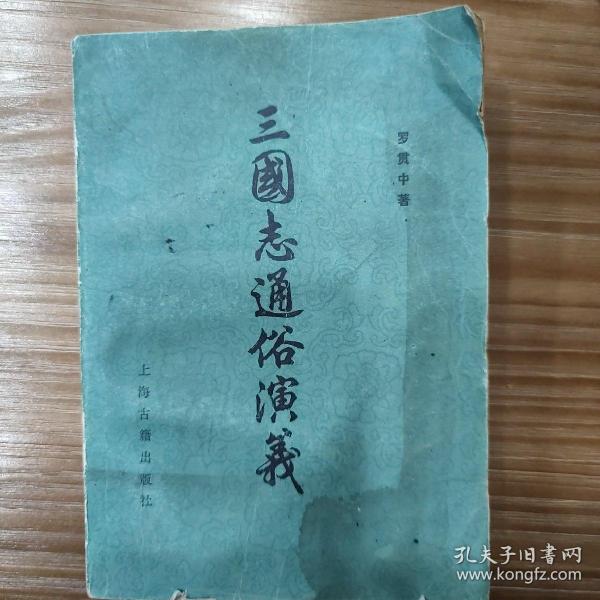 罗贯中著
三國志通俗演義
上海古籍出版社
孔夫子旧書网
www.kongfz.com